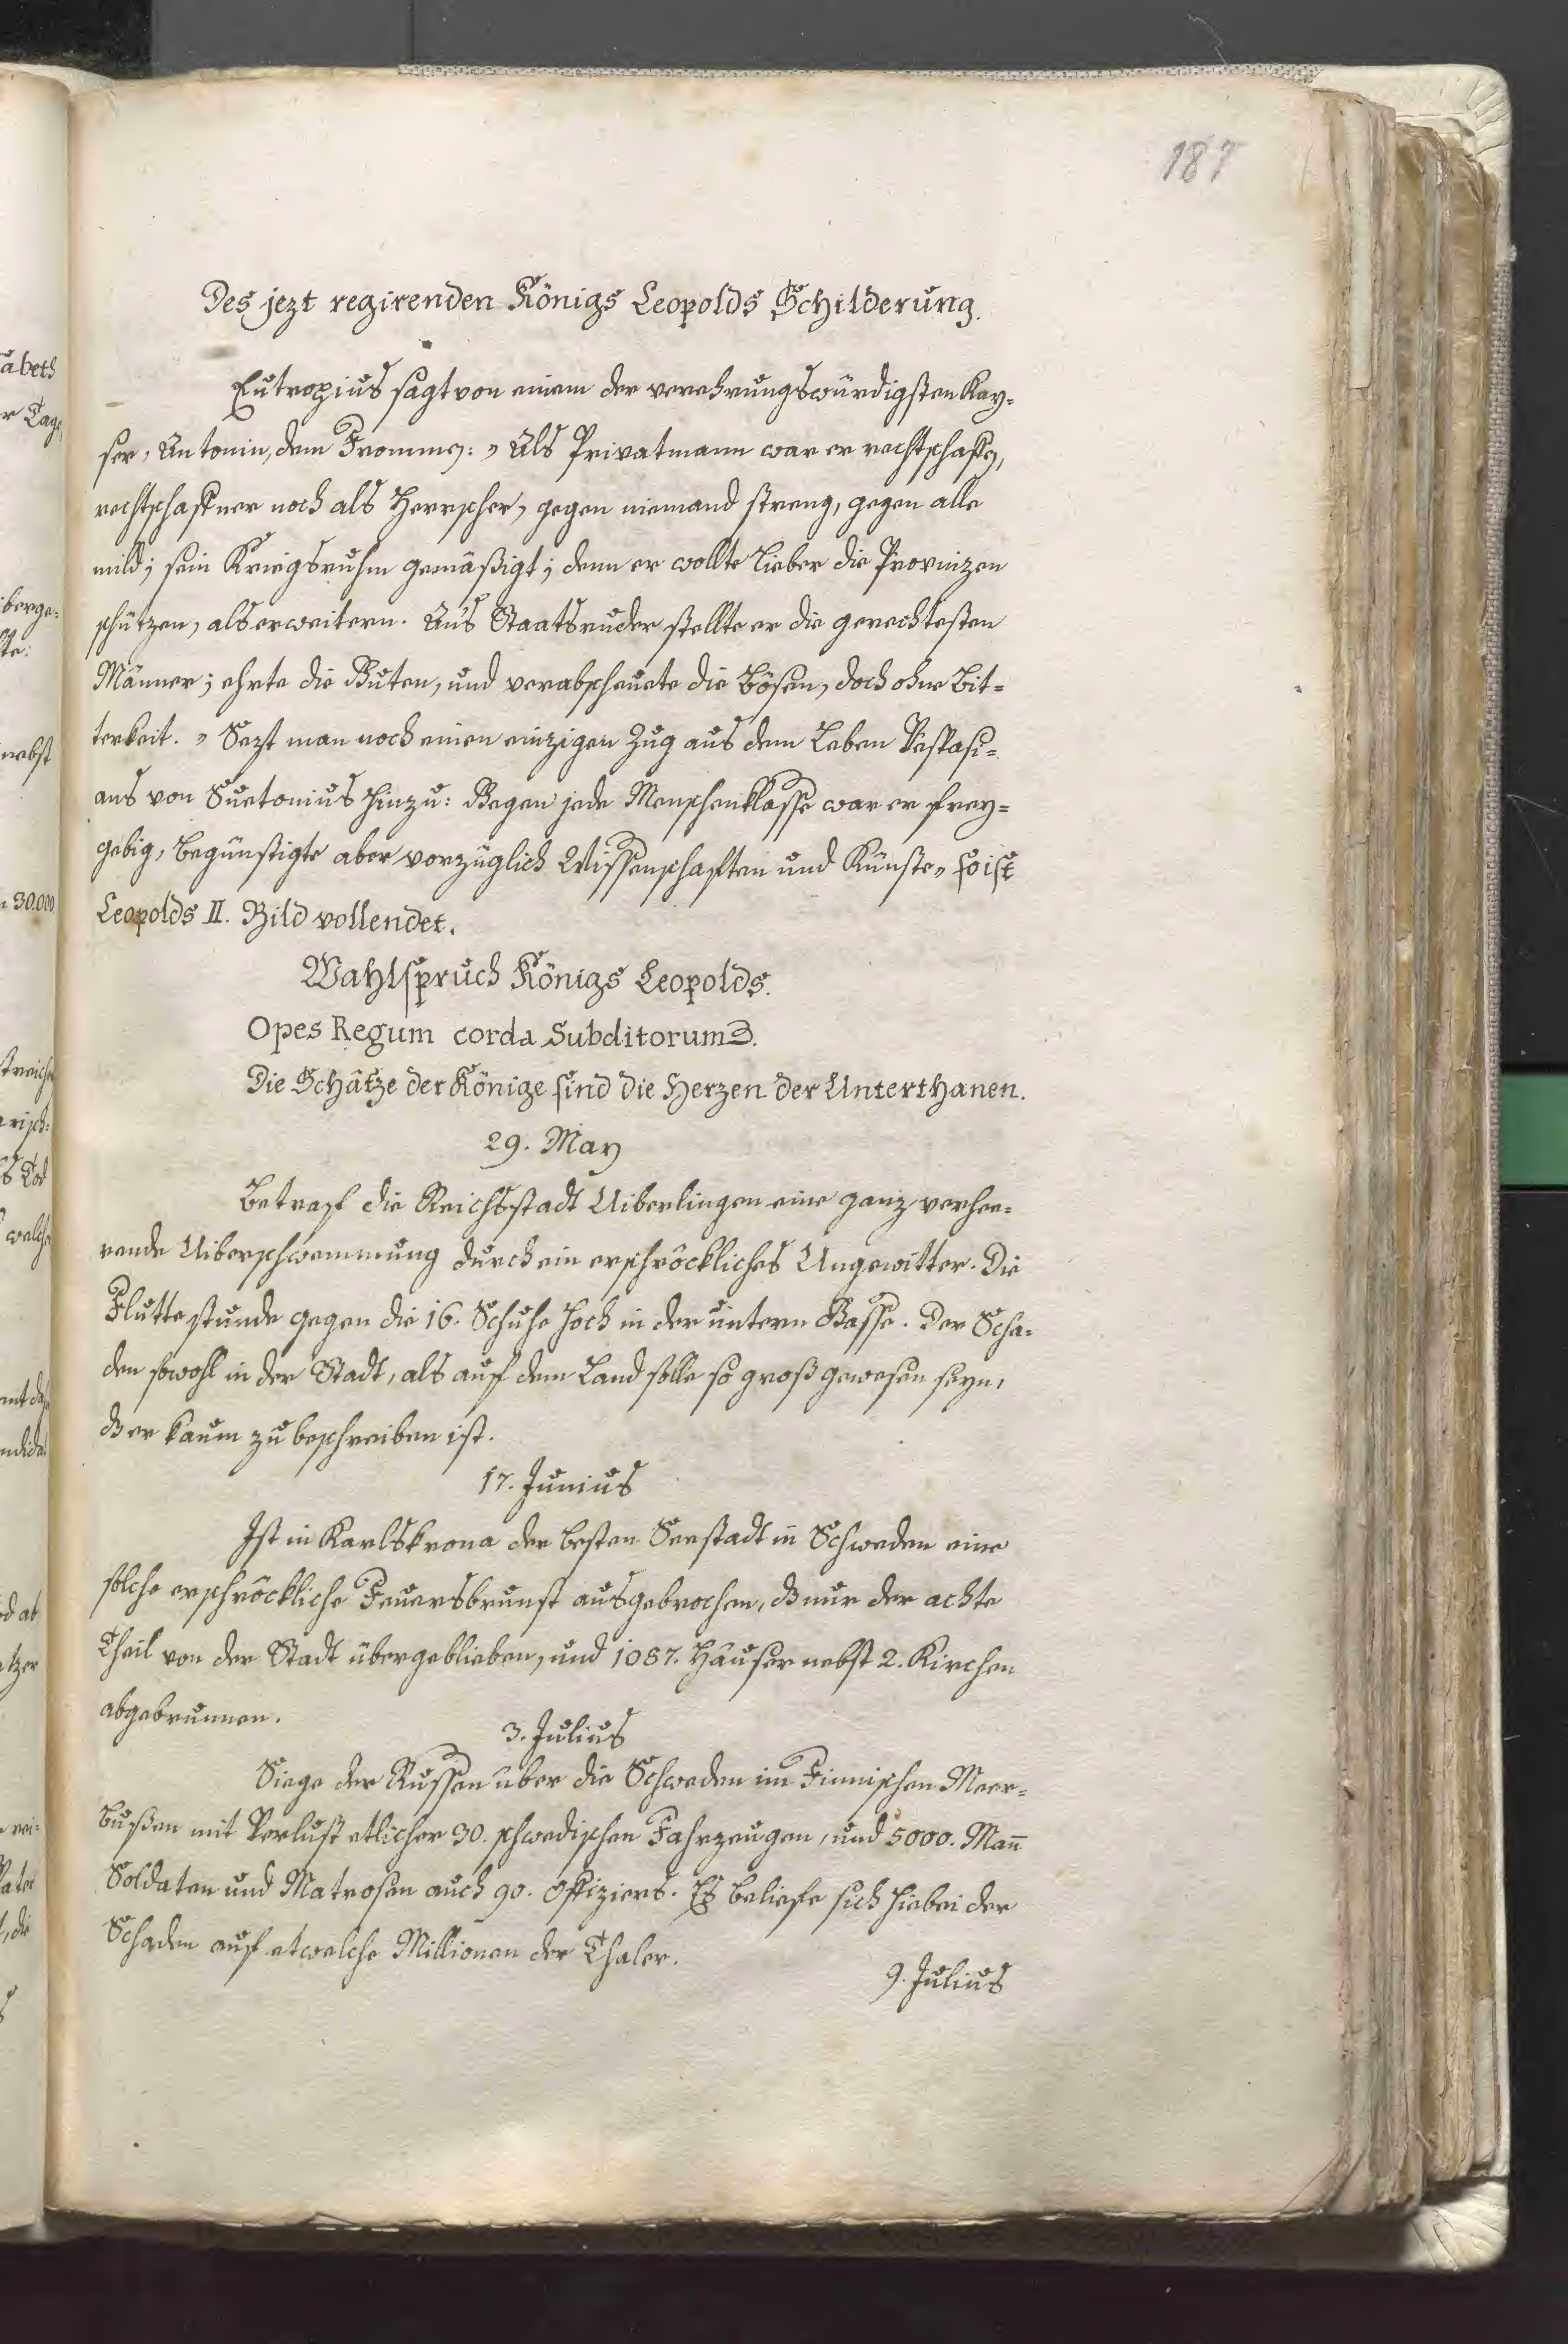 187
Des jezt regirenden Königs Leopolds Schilderung.
Eutropius sagt von einem der verehrungswürdigsten Kay-
ser, Antonin, dem Frommen: „Als Privatmann war er rechtschaffen,
rechtschaffner noch als Herrscher, gegen niemand streng, gegen alle
mild; sein Kriegsruhm gemäßigt; denn er wollte lieber die Provinzen
schützen, als erweitern. An's Staatsruder stellte er die gerechtesten
Männer; ehrte die Guten, und verabscheuete die Bösen, doch ohne Bit-
terkeit.„ Sezt man noch einen einzigen Zug aus dem Leben Vespasi-
ans von Suetonius hinzu: Gegen jede Menschenklasse war er frey-
gebig, begünstigte aber vorzüglich Wissenschaften und Künste„ so ist
Leopolds II. Bild vollendet.
Wahlspruch Königs Leopolds.
Opes Regum corda Subditorum.
Die Schätze der Könige sind die Herzen der Unterthanen.
29. May
Betraf die Reichsstadt Uiberlingen eine ganz verhee-
rende Uiberschwemmung durch ein erschröckliches Ungewitter. Die
Flutte stunde gegen die 16. Schuhe hoch in der untern Gasse. Der Scha-
den sowohl in der Stadt, als auf dem Land solle so groß gewesen seyn,
dß er kaum zu beschreiben ist.
17. Junius
Ist in Karlskrona der besten Seestadt in Schweden eine
solche erschröckliche Feuersbrunst ausgebrochen, dß nur der achte
Theil von der Stadt übergeblieben, und 1087. Häuser nebst 2. Kirchen
abgebrunnen.
3. Julius
Siege der Russen über die Schweden im Finnischen Meer-
bußen mit Verlust etlicher 30. schwedischen Fahrzeugen, und 5000. Mañ
Soldaten und Matrosen auch 90. Offiziers. Es beliefe sich hiebei der
Schaden auf etwelche Millionen der Thaler.
9. Julius